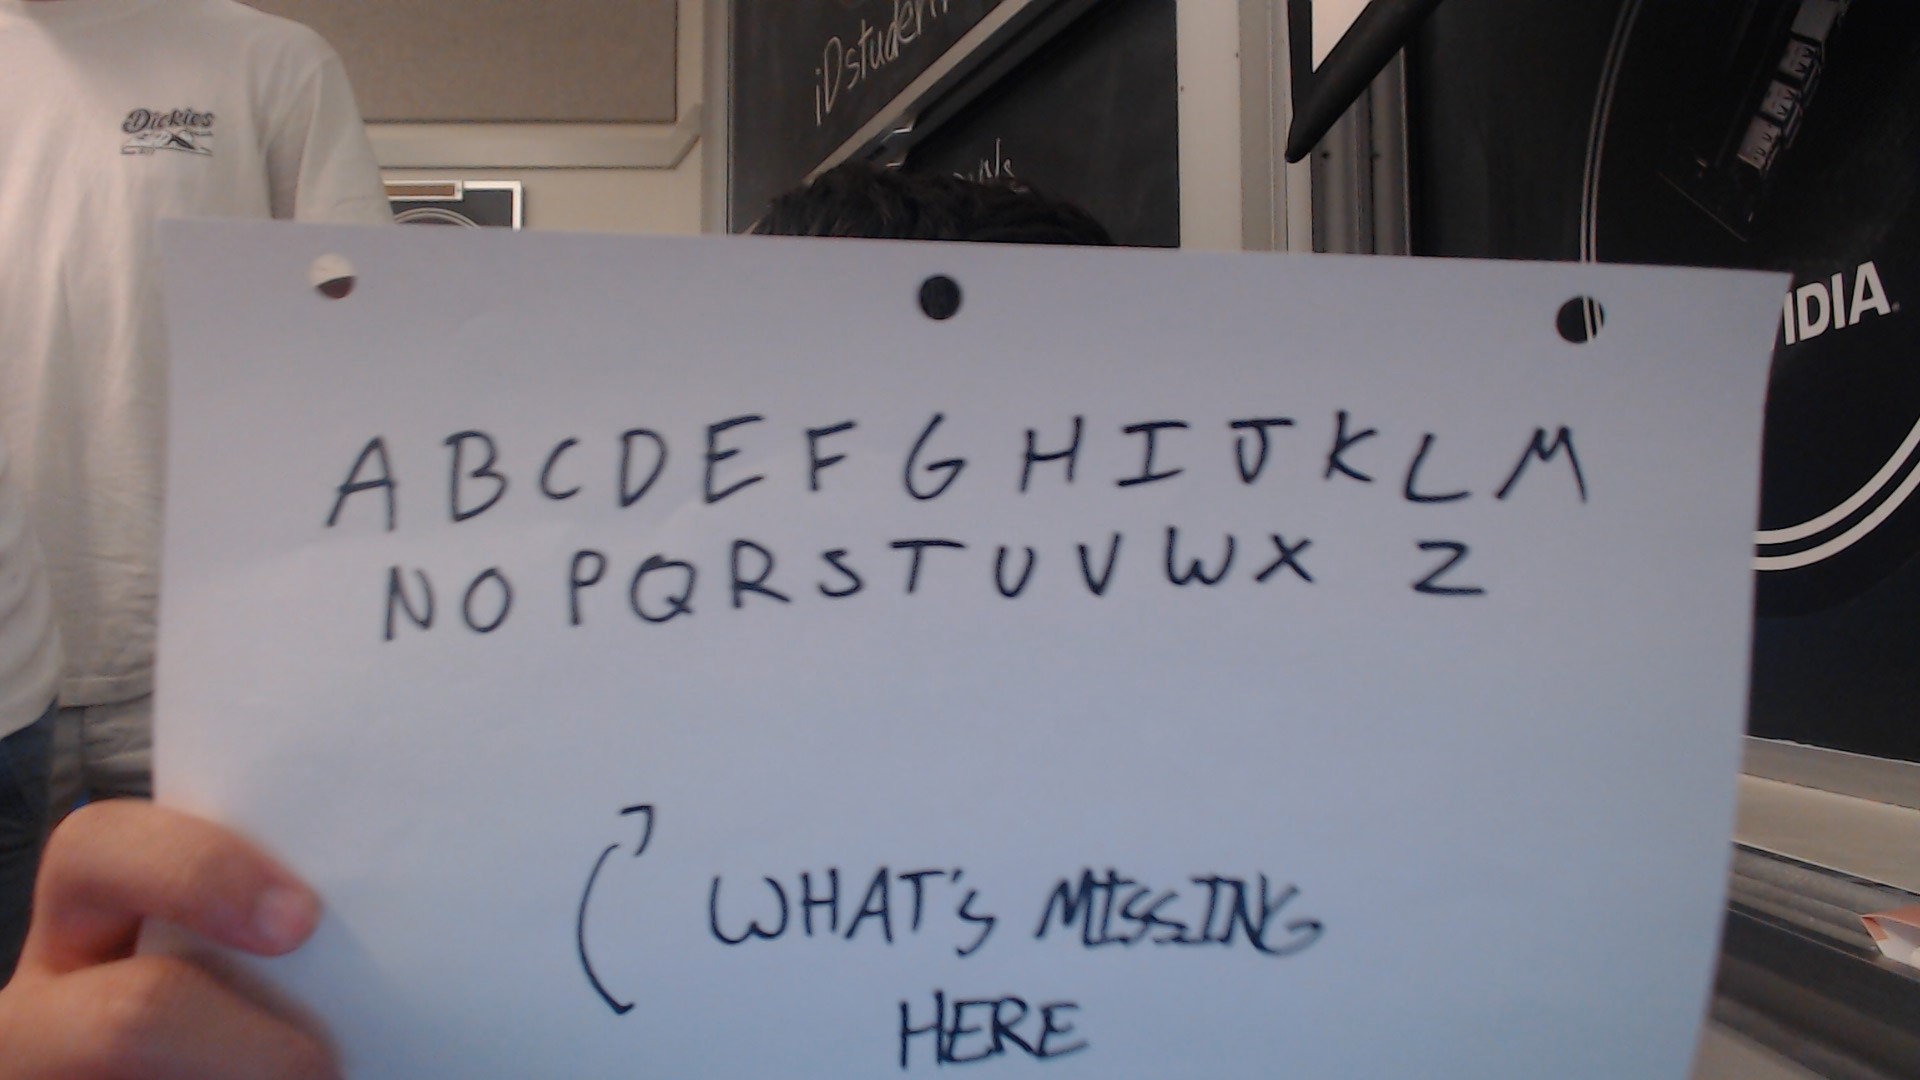 Dickies
iDstuden
IDIA
A B C D E F G H I J K L M
N O P Q R S T U V W X Z
WHAT'S MISSING
HERE